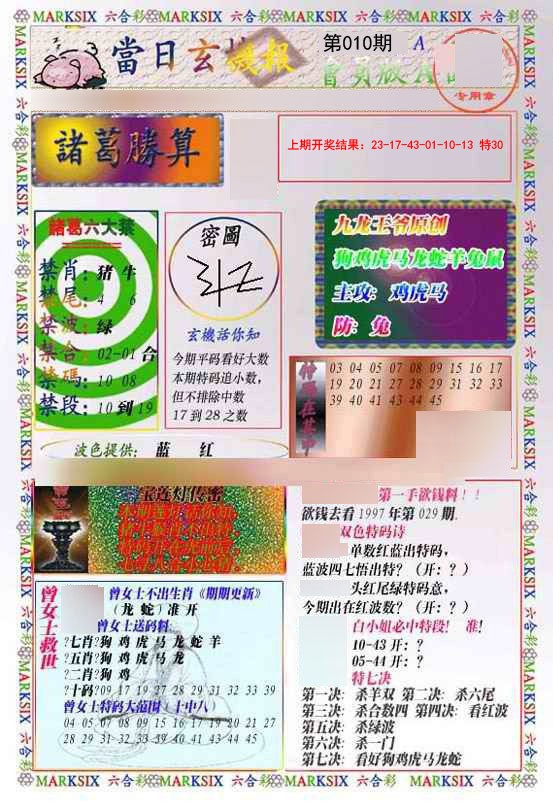 MARKSIX 六合彩 MARKSIX 六合彩 MARKSIX 六合彩 MARKSIX 六合彩 MARKSIX
當日玄機報
第010期 A
會員版A
专用章
諸葛勝算
上期开奖结果：23-17-43-01-10-13 特30
諸葛六大禁
禁肖：猪 牛
禁尾：4 6
禁波：绿
禁合：02-01 合
禁碼：10 08
禁段：10 到 19
密圖
玄機话你知
今期平码看好大数
本期特码追小数，
但不排除中数
17 到 28 之数
九龙王爷原创
狗鸡虎马龙蛇羊兔鼠
主攻：鸡虎马
防：兔
03 04 05 07 08 09 15 16 17
19 20 21 27 28 29 31 32 33
39 40 41 43 44 45
波色提供：蓝 红
宝莲灯传密
第一手欲钱料！！
欲钱去看 1997 年第 029 期.
双色特码诗
单数红蓝出特码，
蓝波四七悟出特？（开：？）
头红尾绿特码意，
今期出在红波数？（开：？）
白小姐必中特段！ 准！
10-43 开：？
05-44 开：？
特七决
第一决：杀羊双 第二决：杀六尾
第三决：杀合数四 第四决：看红波
第五决：杀绿波
第六决：杀一门
第七决：看好狗鸡虎马龙蛇
曾女士救世
曾女士不出生肖《期期更新》
（龙 蛇）准 开
曾女士送码料
?七肖?狗 鸡 虎 马 龙 蛇 羊
?五肖?狗 鸡 虎 马 龙
?二肖?狗 鸡
?十码?09 17 19 27 28 29 31 32 33 39
曾女士特码大范围（十中八）
04 05 07 08 09 15 16 17 19 20 21 27
28 29 31 32 33 39 40 41 43 44 45
MARKSIX 六合彩 MARKSIX 六合彩 MARKSIX 六合彩 MARKSIX 六合彩 MARKSIX